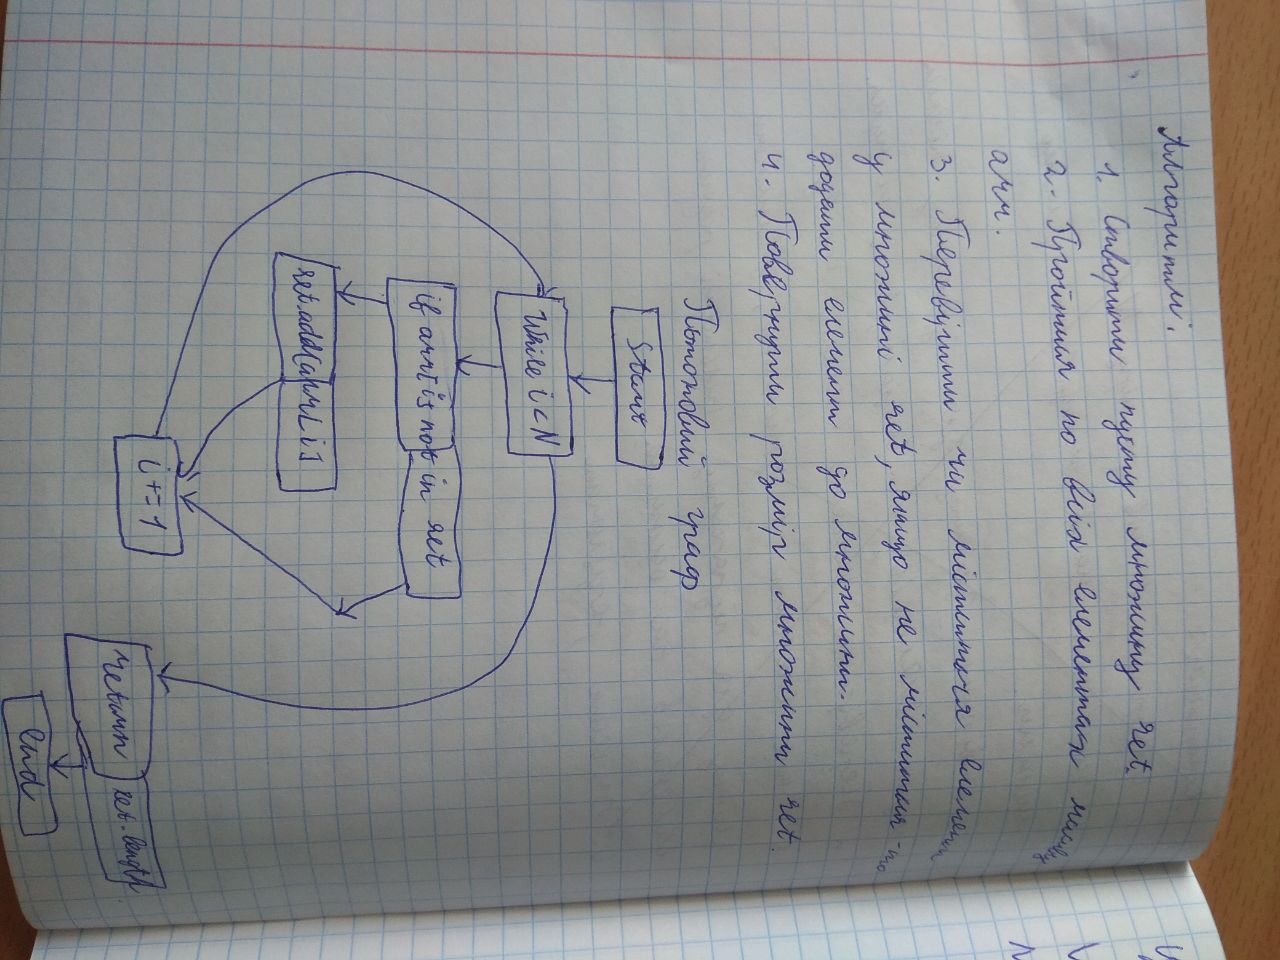 Алгоритм:
1. Створити пусту множину set.
2. Пройтися по всіх елементах масиву
arr.
3. Перевірити чи міститься елемент
у множині set, якщо не міститься - то
додати елемент до множини.
4. Повернути розмір множини set.
Потоковий граф
Start
While i < N
if arr[i] not in set
set.add(arr[i]
i += 1
return set.length
end